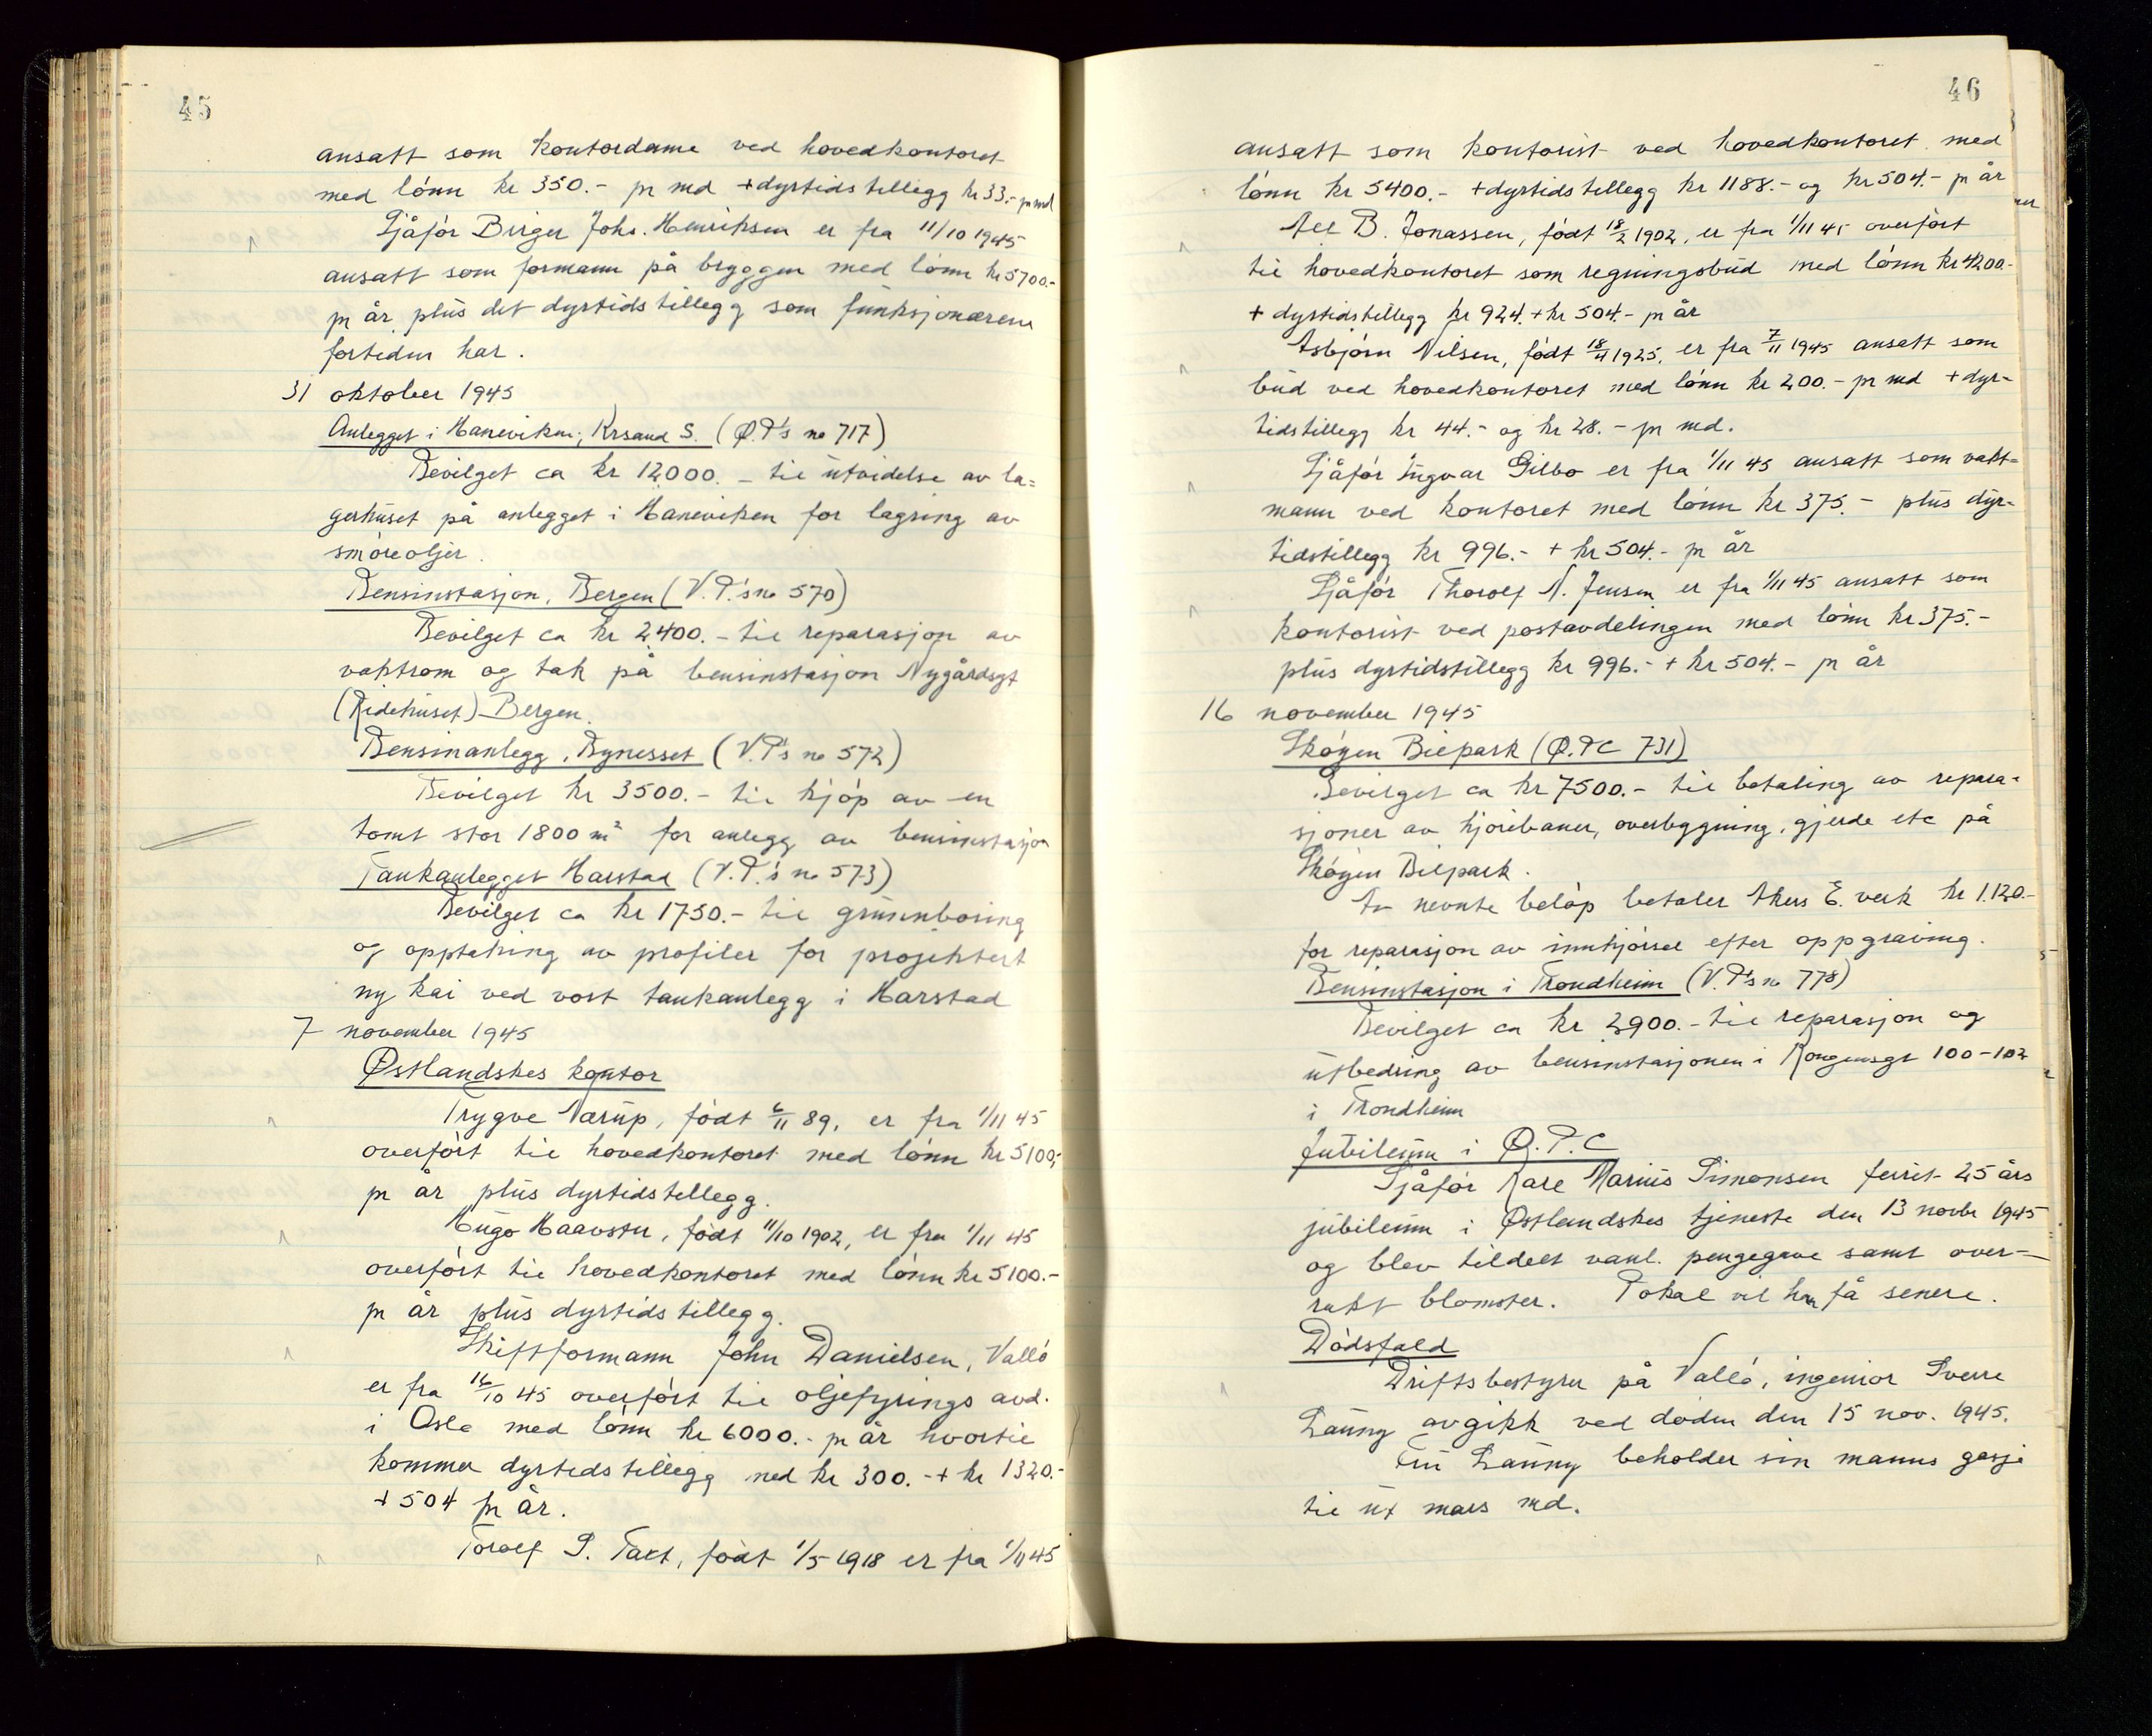 45
ansatt som kontordame ved hovedkontoret
med lønn kr 350.- pr md + dyrtidstillegg kr 33.- pr md
Sjåfør Birger Johs. Henriksen er fra 11/10 1945
ansatt som formann på bryggen med lønn kr 5700.-
pr år plus det dyrtidstillegg som funksjonærene
fortiden har.
31 oktober 1945
Anlegget i Haneviken, Krsand S. (Ø.P's no 717)
Bevilget ca kr 12000.- til utvidelse av la=
gerhuset på anlegget i Haneviken for lagring av
smøreoljer.
Bensinstasjon, Bergen (V.P.'s no 570)
Bevilget ca kr 2400.- til reparasjon av
vaktrom og tak på bensinstasjon Nygårdsgt
(Ridehuset) Bergen.
Bensinanlegg, Bynesset (V.P's no 572)
Bevilget kr 3500.- til kjøp av en
tomt stor 1800 m² for anlegg av bensinstasjon
Tankanlegget Harstad (V.P.'s no 573)
Bevilget ca kr 1750.- til grunnboring
og opptakning av profiler for projektert
ny kai ved vort tankanlegg i Harstad
7 november 1945
Østlandskes kontor
Trygve Narup, født 6/11 89, er fra 1/11 45
overført til hovedkontoret med lønn kr 5100,-
pr år plus dyrtidstillegg.
Hugo Haavster, født 11/10 1902, er fra 1/11 45
overført til hovedkontoret med lønn kr 5100.-
pr år plus dyrtidstillegg.
Skiftformann John Danielsen, Vallø
er fra 16/10 45 overført til oljefyrings avd.
i Oslo med lønn kr 6000.- pr år hvortil
kommer dyrtidstillegg med kr 300.- + kr 1320.-
+ 504 pr år.
Torolf S. født 1/5 1918 er fra 1/11 45
46
ansatt som kontorist ved hovedkontoret med
lønn kr 5400.- + dyrtidstillegg kr 1188.- og kr 504.- pr år
B. Jonassen, født 18/2 1902, er fra 1/11 45 overført
til hovedkontoret som regningsbud med lønn kr 4200.-
+ dyrtidstillegg kr 924. + kr 504.- pr år
Asbjørn Nilsen, født 18/4 1925, er fra 7/11 1945 ansatt som
bud ved hovedkontoret med lønn kr 200.- pr md + dyr-
tidstillegg kr 44.- og kr 28.- pr md.
Sjåfør Ingvar Gilbo er fra 1/11 45 ansatt som vakt=
mann ved kontoret med lønn kr 375.- plus dyr-
tidstillegg kr 996.- + kr 504.- pr år
Sjåfør Thorolf N. Jensen er fra 1/11 45 ansatt som
kontorist ved postavdelingen med lønn kr 375.-
plus dyrtidstillegg kr 996.- + kr 504.- pr år
16 november 1945
Skøyen Bilpark (Ø.P.C 731)
Bevilget ca kr 7500.- til betaling av repara-
sjoner av kjørebaner, overbygning, gjerde etc på
Skøyen Bilpark.
Av nevnte beløp betaler Akers E. verk kr 1.120.-
for reparasjon av innkjørsel efter oppgraving.
Bensinstasjon i Trondheim (V.P's no 778)
Bevilget ca kr 2900.- til reparasjon og
utbedring av bensinstasjonen i Kongensgt 100-102
i Trondheim
Jubileum i Ø.P.C
Sjåfør Kåre Marius Simonsen feiret 25 års
jubileum i Østlandskes tjeneste den 13 novbr 1945
og blev tildelt vanl. pengegave samt over-
rakt blomster. Pokal vil han få senere.
Dødsfald
Driftsbestyrer på Vallø, ingeniør Sverre
Launy avgikk ved døden den 15 nov. 1945.
Fru Launy beholder sin manns gasje
til ut mars md.